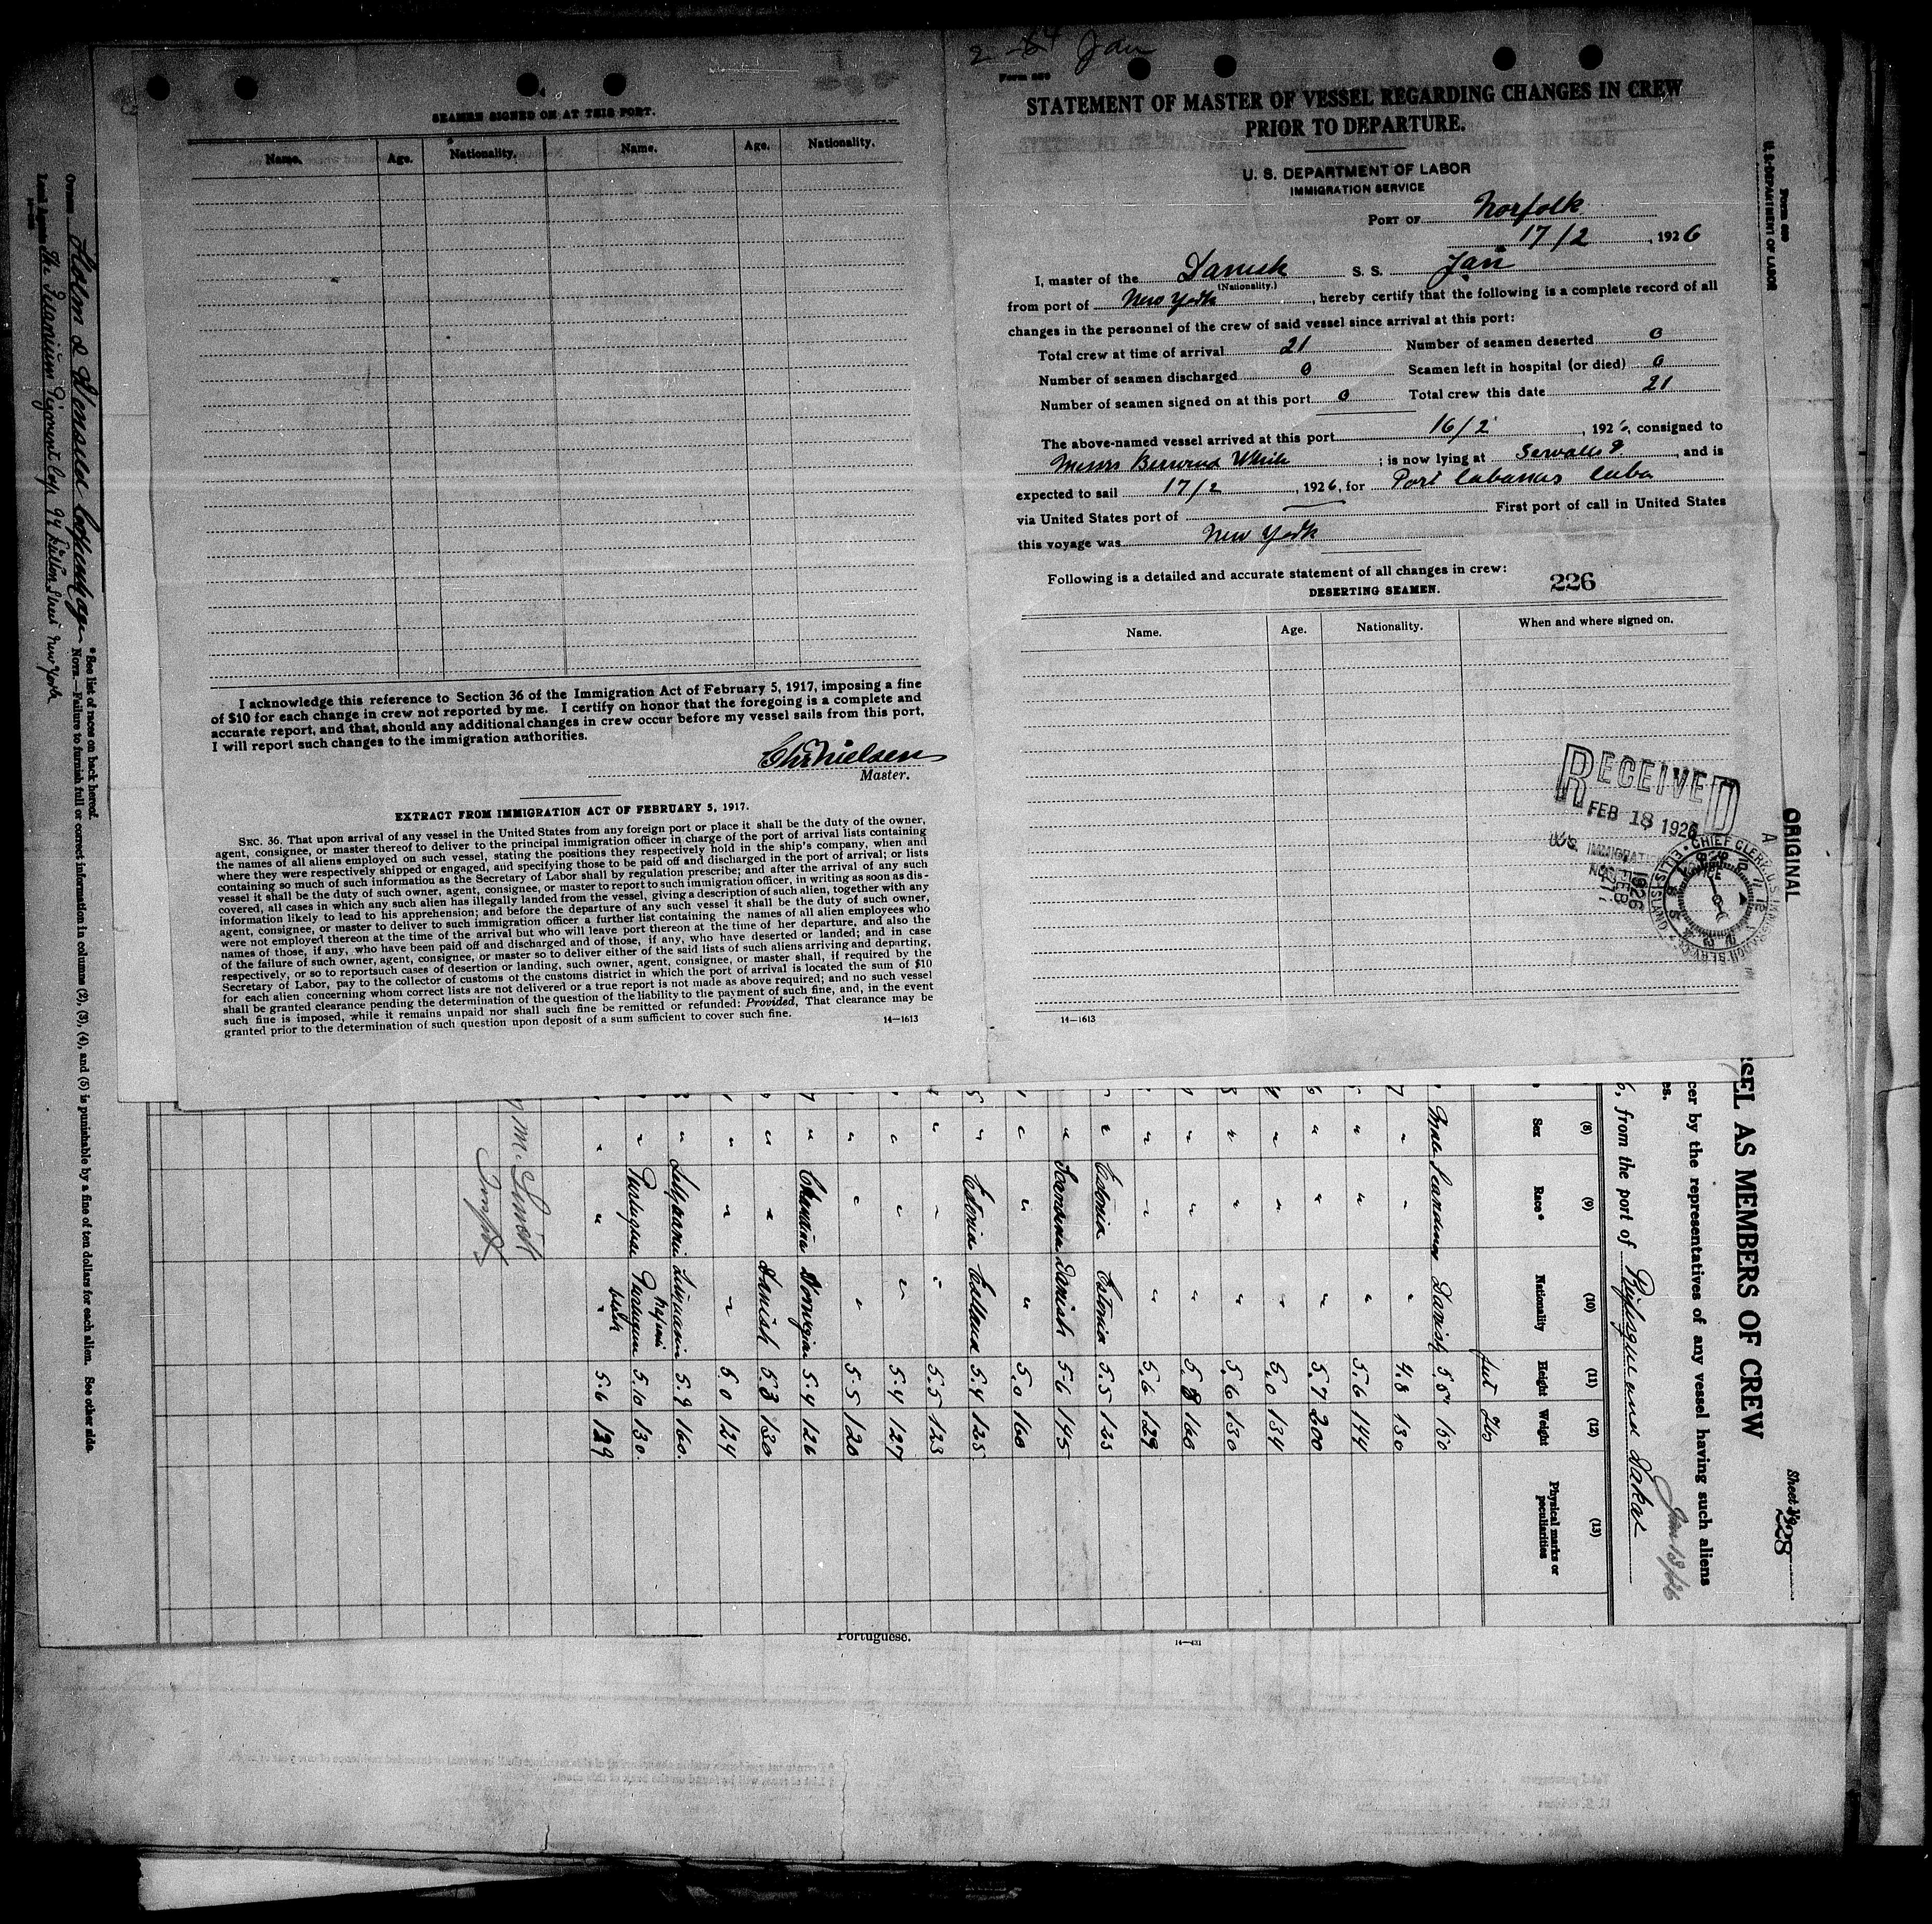 2 Jan
SEAMEN SIGNED ON AT THIS PORT.
Name. Age. Nationality. Name. Age. Nationality.
I acknowledge this reference to Section 36 of the Immigration Act of February 5, 1917, imposing a fine
of $10 for each change in crew not reported by me. I certify on honor that the foregoing is a complete and
accurate report, and that, should any additional changes in crew occur before my vessel sails from this port,
I will report such changes to the immigration authorities.
Chr Nielsen
Master.
EXTRACT FROM IMMIGRATION ACT OF FEBRUARY 5, 1917.
SEC. 36. That upon arrival of any vessel in the United States from any foreign port or place it shall be the duty of the owner,
agent, consignee, or master thereof to deliver to the principal immigration officer in charge of the port of arrival lists containing
the names of all aliens employed on such vessel, stating the positions they respectively hold in the ship's company, when and
where they were respectively shipped or engaged, and specifying those to be paid off and discharged in the port of arrival; or lists
containing so much of such information as the Secretary of Labor shall by regulation prescribe; and after the arrival of any such
vessel it shall be the duty of such owner, agent, consignee, or master to report to such immigration officer, in writing as soon as dis-
covered, all cases in which any such alien has illegally landed from the vessel, giving a description of such alien, together with any
information likely to lead to his apprehension; and before the departure of any such vessel it shall be the duty of such owner,
agent, consignee, or master to deliver to such immigration officer a further list containing the names of all alien employees who
were not employed thereon at the time of the arrival but who will leave port thereon at the time of her departure, and also the
names of those, if any, who have been paid off and discharged and of those, if any, who have deserted or landed; and in case
of the failure of such owner, agent, consignee, or master so to deliver either of the said lists of such aliens arriving and departing,
respectively, or so to report such cases of desertion or landing, such owner, agent, consignee, or master shall, if required by the
Secretary of Labor, pay to the collector of customs of the customs district in which the port of arrival is located the sum of $10
for each alien concerning whom correct lists are not delivered or a true report is not made as above required; and no such vessel
shall be granted clearance pending the determination of the question of the liability to the payment of such fine, and, in the event
such fine is imposed, while it remains unpaid nor shall such fine be remitted or refunded: Provided, That clearance may be
granted prior to the determination of such question upon deposit of a sum sufficient to cover such fine.
14—1613
STATEMENT OF MASTER OF VESSEL REGARDING CHANGES IN CREW
PRIOR TO DEPARTURE.
U. S. DEPARTMENT OF LABOR
IMMIGRATION SERVICE
PORT OF Norfolk
17/2, 1926
I, master of the Danish S. S. Jan
(Nationality.)
from port of New York, hereby certify that the following is a complete record of all
changes in the personnel of the crew of said vessel since arrival at this port:
Total crew at time of arrival 21 Number of seamen deserted 0
Number of seamen discharged 0 Seamen left in hospital (or died) 0
Number of seamen signed on at this port 0 Total crew this date 21
The above-named vessel arrived at this port 16/2, 1926, consigned to
Messrs Berwind White; is now lying at Sewalls P., and is
expected to sail 17/2, 1926, for Port Cabanas Cuba
via United States port of First port of call in United States
this voyage was New York
Following is a detailed and accurate statement of all changes in crew:
DESERTING SEAMEN. 226
Name. Age. Nationality. When and where signed on.
RECEIVED
FEB 18 1926
U.S. IMMIGRATION
CHIEF CLERK U.S. IMMIGRATION SERVICE
ELLIS ISLAND
1926 FEB
14—1613
U. S. DEPARTMENT OF LABOR
ORIGINAL
Sheet No.
228
SEL AS MEMBERS OF CREW
cer by the representatives of any vessel having such aliens
es.
6, from the port of Rufisque and Dakar
Jan 13/26
(8) (9) (10) (11) (12) (13)
Sex Race* Nationality Height Weight Physical marks or peculiarities
Male Danish 5.5 150
" " " 4.8 130
" " " 5.6 144
" " " 5.7 200
" " " 5.0 134
" " " 5.6 130
" " " 5.8 160
" " " 5.6 129
" Estonia Estonia 5.5 125
" Danish 5.6 145
" " " 5.0 160
" Estonia 5.4 125
" " " 5.5 123
" " " 5.4 127
" " " 5.5 120
" Norwegian 5.4 126
" " Danish 5.8 130
" " " 5.0 124
" 5.9 160
" Portuguese Portuguese 5.10 130
" " " 5.6 129
Owners Holm & Wonsild Copenhagen
Local Agents The Titanium Pigment Corp. 94 Fulton Street New York
* See list of races on back hereof.
NOTE.—Failure to furnish full or correct information in columns (2), (3), (4), and (5) is punishable by a fine of ten dollars for each alien. See other side.
Portuguese.
14—431